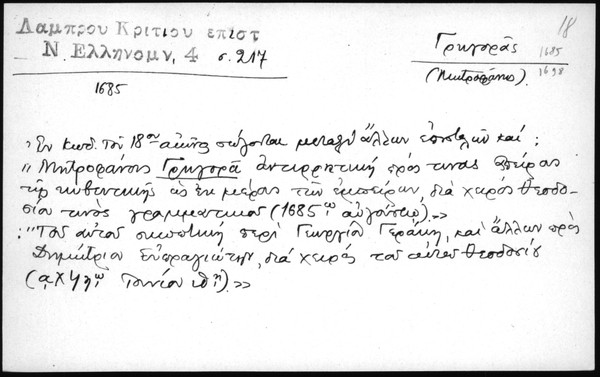 Λαμπρου Κριτιου επιστ
Ν. Ελληνομν, 4 σ. 217
18
Γρηγορᾶς
1685
1698
(Μητροφάνης).
1685
Ἐν κωδ. τοῦ 18ου αἰῶνος σώζονται μεταξὺ ἄλλων ἐπιστολῶν καὶ:
"Μητροφάνους Γρηγορᾶ ἀντιρρητικὴ πρός τινας ἀπείρους
τῆς ποιητικῆς ὡς ἐκ μέρους τῶν ἐμπείρων, διὰ χειρὸς Θεοδο-
σίου τινὸς γραμματικοῦ (1685ῳ αὐγούστῳ).»
:"Τοῦ αὐτοῦ σκωπτικὴ περὶ Γεωργίου Γεράκη, καὶ ἄλλων πρὸς
Δημήτριον Εὐπραγιώτην, διὰ χειρὸς τοῦ αὐτοῦ Θεοδοσίου
(αχϟηῳ Ἰουνίου ιθῃ).»